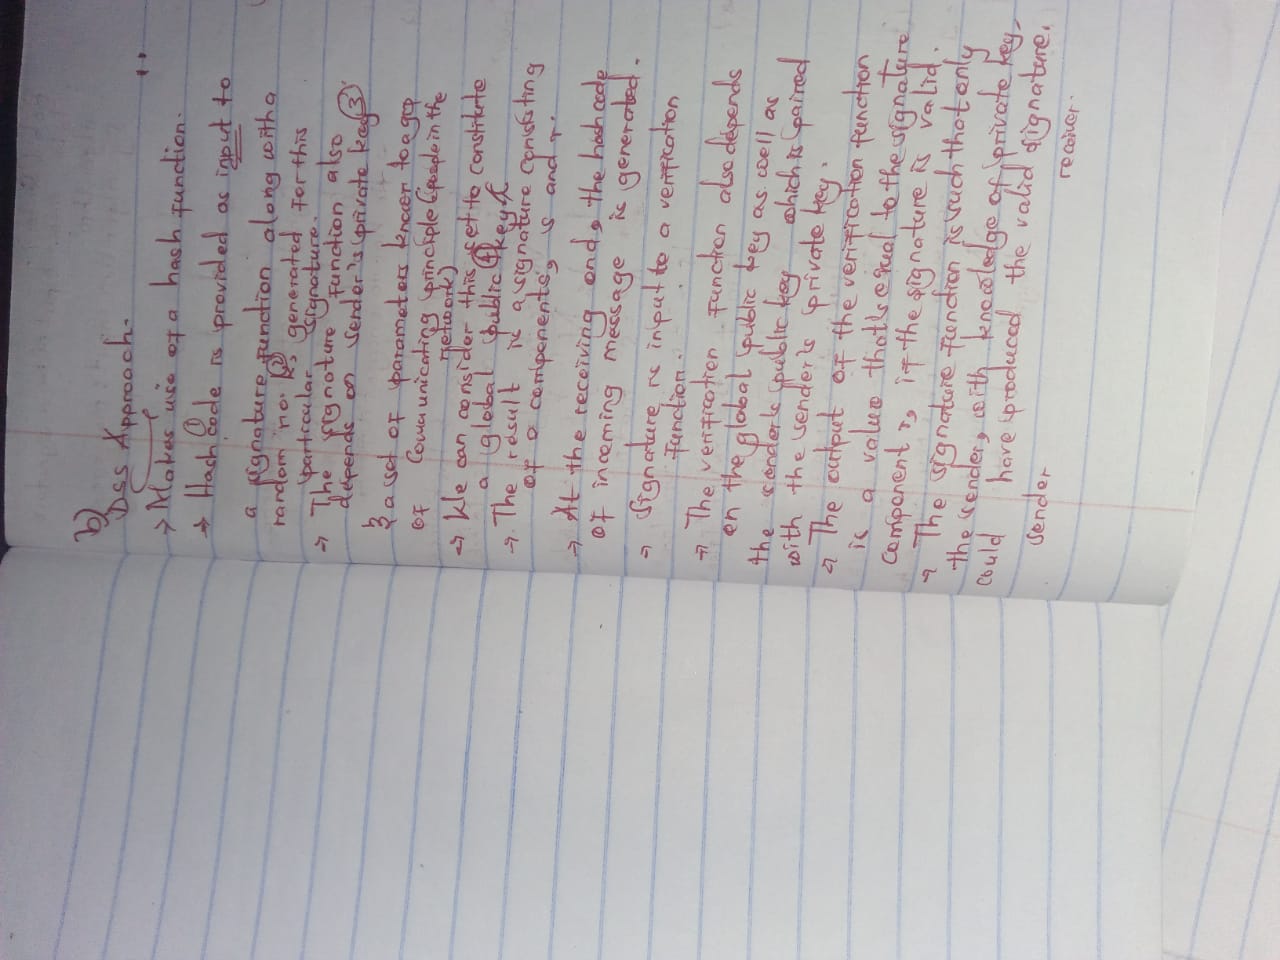 b)
DSS Approach.
→ Makes use of a hash function.
→ Hash ① code is provided as input to
a signature function along with a
random no. k ②, generated for this
particular signature.
→ The signature function also
depends on sender's private key ③
& a set of parameters known to a grp
of Communicating principle (people in the
network)
→ We can consider this set to constitute
a global public ④ key
→ The result is a signature consisting
of 2 components, s and r.
→ At the receiving end, the hash code
of incoming message is generated.
→ Signature is input to a verification
function.
→ The verification function also depends
on the global public key as well as
the sender's public key which is paired
with the sender's private key.
→ The output of the verification function
is a value that's equal to the signature
component r, if the signature is valid.
→ The signature function is such that only
the sender, with knowledge of private key,
could have produced the valid signature.
sender
receiver.